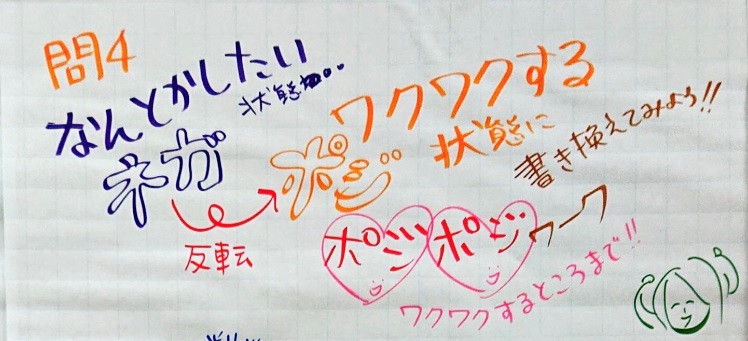 問4
なんとかしたい
状態を・・
ネガ
反転
ポジ
ワクワクする
状態に
書き換えてみよう!!
ポジポジワーク
ワクワクするところまで!!